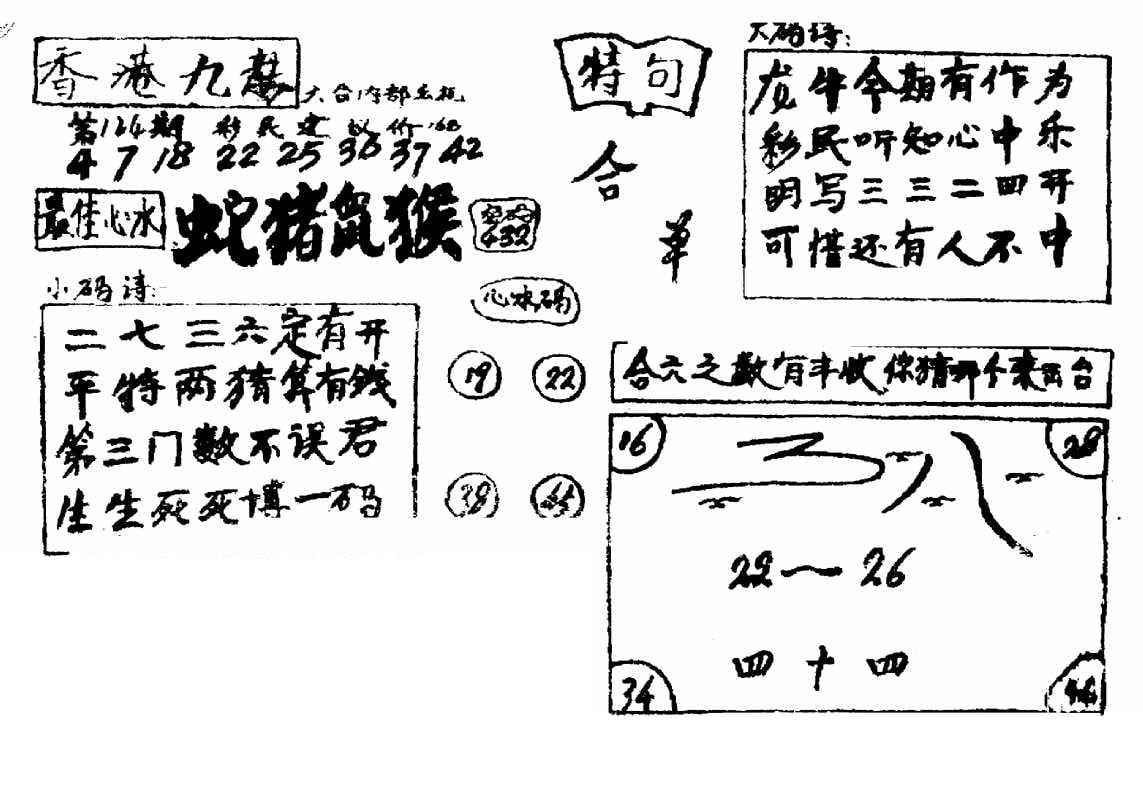 香港九龙
大台内部玄机
第124期 彩民建议价168
4 7 18 22 25 36 37 42
最佳心水 蛇猪鼠猴
432
小码诗:
二七三六定有开
平特两猜算有钱
第三门数不误君
生生死死博一码
心水码
19 22
38 45
特句
合
单
大码诗:
龙牛今期有作为
彩民听知心中乐
明写三三二四开
可惜还有人不中
合六之数有丰收你猜那个来出台
16 28
22~26
四十四
34 46